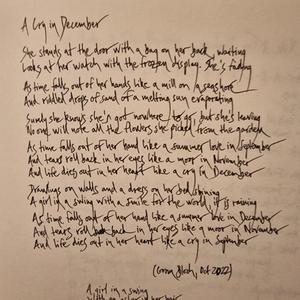 A Cry in December
She stands at the door with a bag on her back, waiting
Looks at her watch with the frozen display. She's fading
As time falls out of her hands like a mill on a seashore
And riddled drops of sand of a melting sun evaporating
Surely she knows she's got nowhere to go, but she's leaving
No one will note all the flowers she picked from the garden
As time falls out of her hand like a summer love in September
And tears roll back in her eyes like a moor in November
And life dies out in her heart like a cry in December
Drawings on walls and a dress on her bed, shining
A girl in a swing with a smile for the world, it is raining
As time falls out of her hand like a summer love in December
And tears roll back in her eyes like a moor in November
And life dies out in her heart like a cry in September
Oct 2022)
A girl in a swing
in her hair